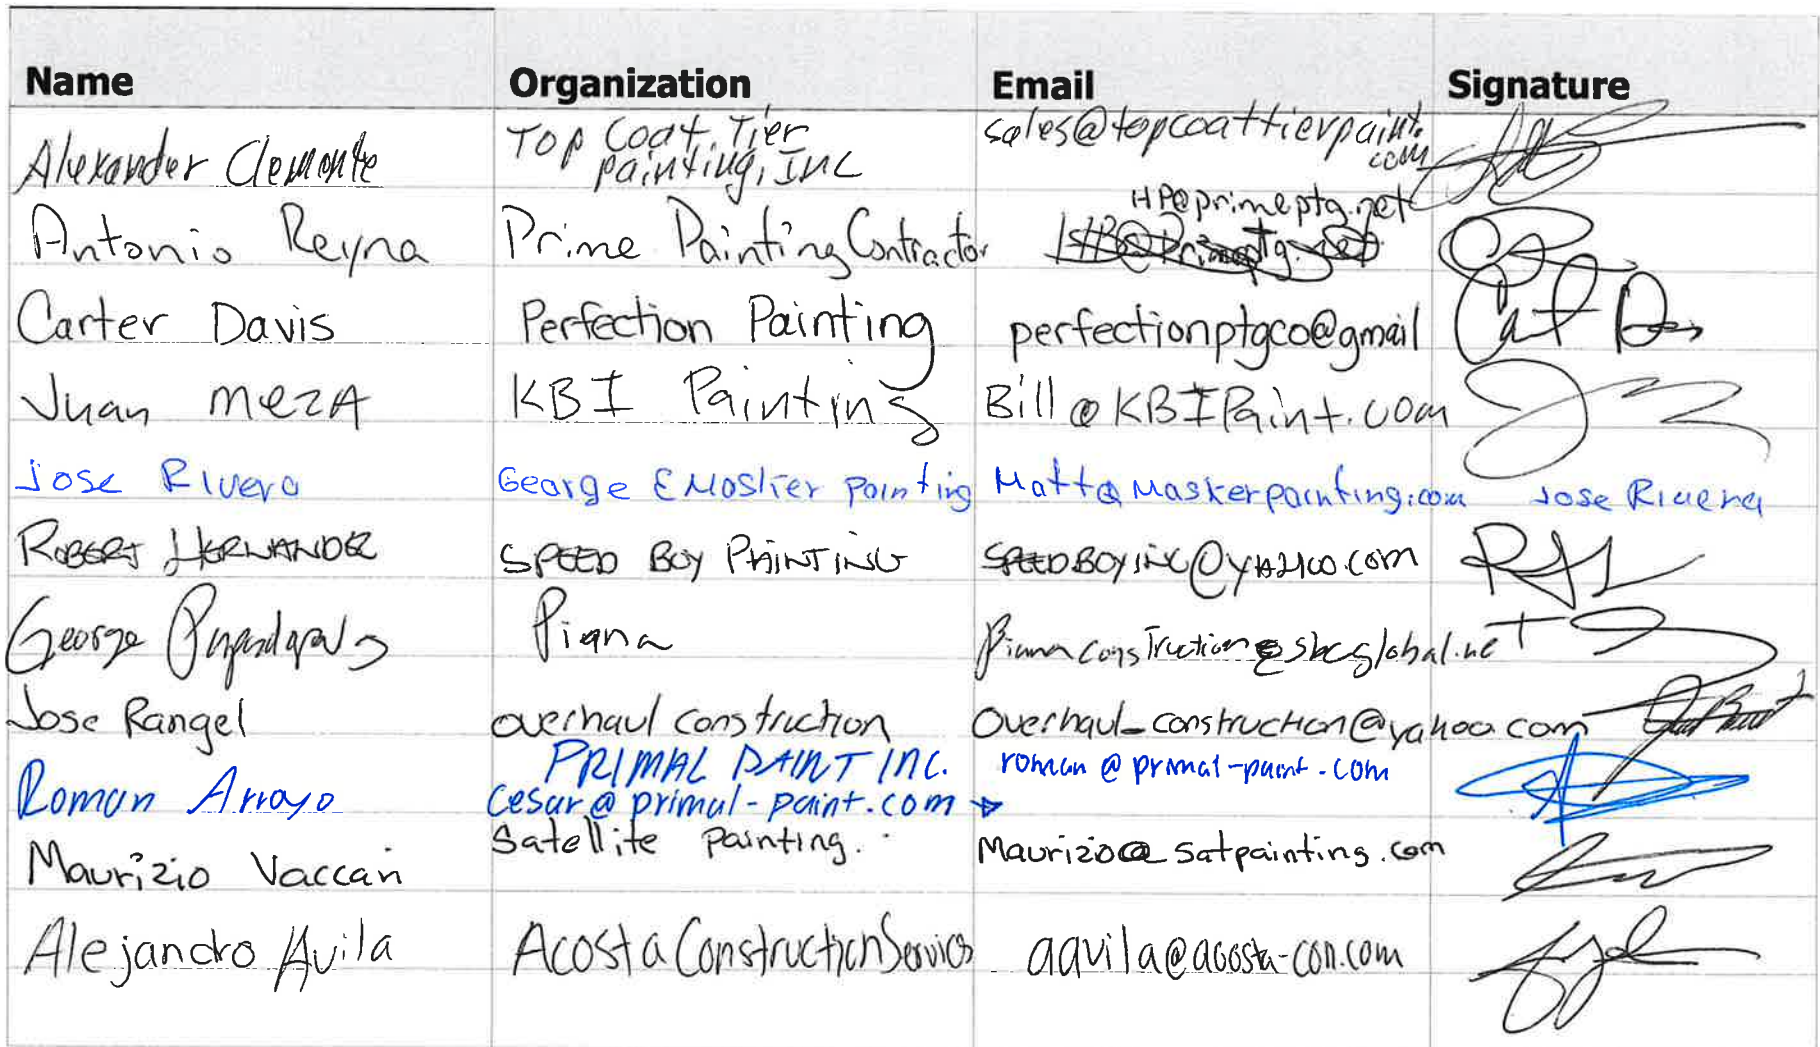 Name Organization Email Signature
Alexander Clemente Top Coat Tier painting, INC sales@topcoattierpaint.com
Antonio Reyna Prime Painting Contractor HP@primeptg.net
Carter Davis Perfection Painting perfectionptgco@gmail
Juan MEZA KBI Painting Bill@KBIPaint.com
Jose Rivera George E Mosker painting Matt@Moskerpainting.com Jose Rivera
ROBERT HERNANDEZ SPEED BOY PAINTING SPEEDBOYINC@YAHOO.COM
George Piana Pianaconstruction@sbcglobal.net
Jose Rangel overhaul construction overhaul_construction@yahoo.com
Roman Arroyo PRIMAL PAINT INC. roman@primal-paint.com
cesar@primal-paint.com
Maurizio Vaccari Satellite Painting. Maurizio@satpainting.com
Alejandro Avila Acosta Construction Services aavila@acosta-con.com